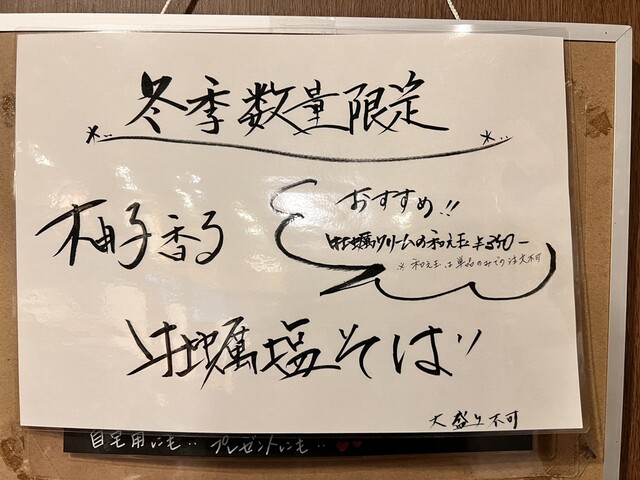 冬季数量限定
柚子香る
おすすめ!!
牡蠣クリームの和え玉 ¥350-
※和え玉は単品のみでの注文不可
牡蠣塩そば
大盛り不可
自宅用にも‥ プレゼントにも‥